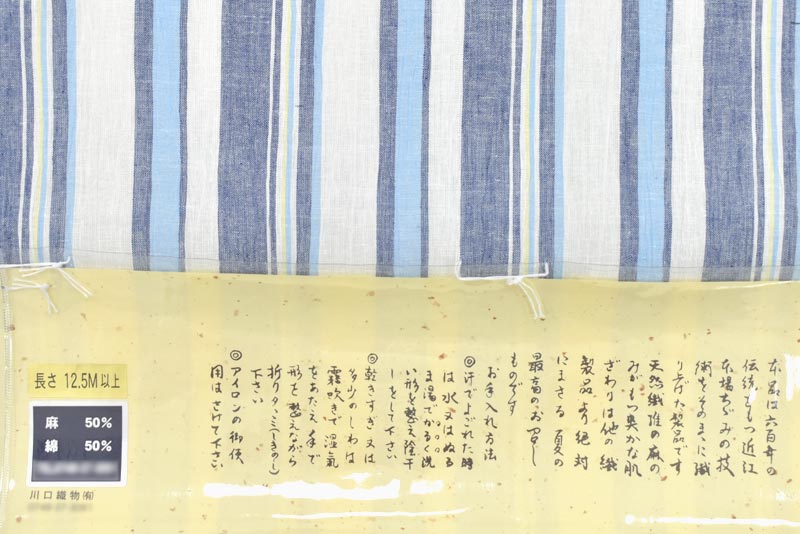 本品は六百年の
伝統をもつ近江
本場ちゞみの技
術をそのまゝに織
り上げた製品です
天然繊維の麻の
みがもつ爽かな肌
ざわりは他の繊
製品より絶対
にまさる夏の
最高のお召し
ものです
お手入れ方法
◎汗でよごれた時
は水又はぬる
ま湯でかるく洗
い形を整え陰干
しをして下さい
◎乾きすぎ又は
多少のしわは
霧吹きで湿気
をあたえ手で
形を整えながら
折りタゝミ(しきのし)
下さい
◎アイロンの御使
用はさけて下さい
長さ 12.5M以上
麻 50%
綿 50%
川口織物㈲